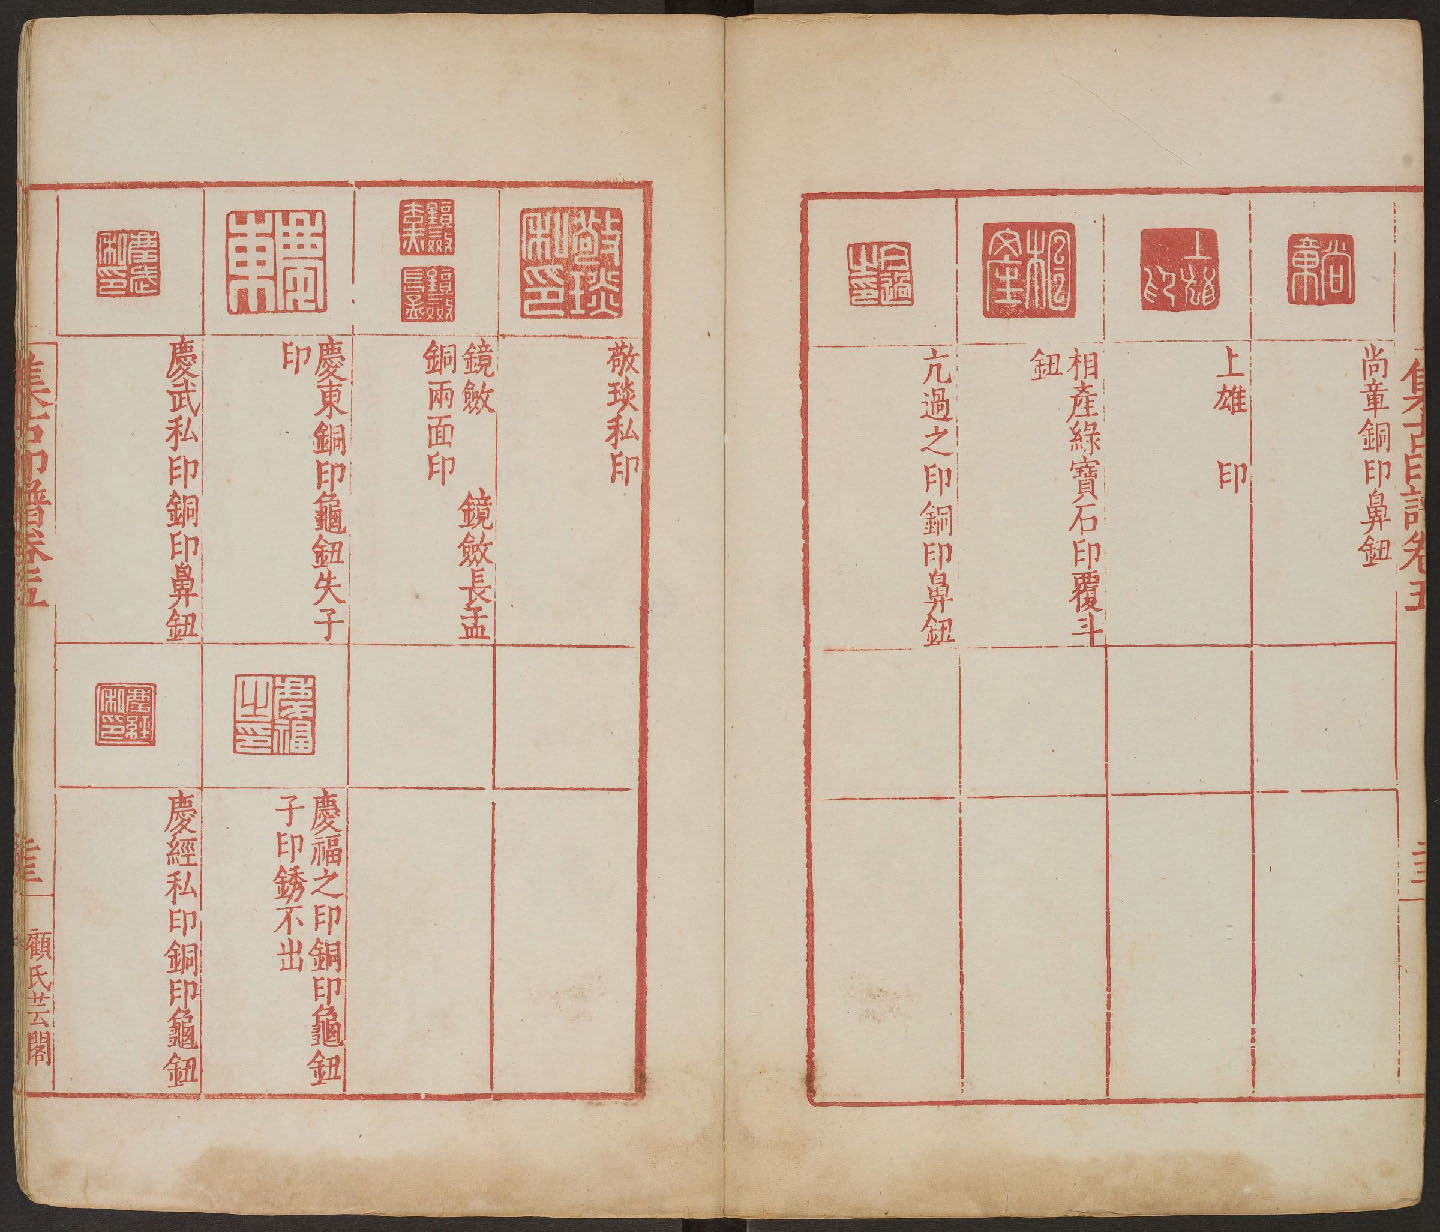 集古印譜卷五
尚章銅印鼻鈕
上雄　印
相產綠寶石印覆斗
鈕
亢過之印銅印鼻鈕
敬琰私印
鏡斂　鏡斂長孟
銅兩面印
慶東銅印龜鈕失子
印
慶福之印銅印龜鈕
子印銹不出
慶武私印銅印鼻鈕
慶經私印銅印龜鈕
集古印譜卷五
顧氏芸閣